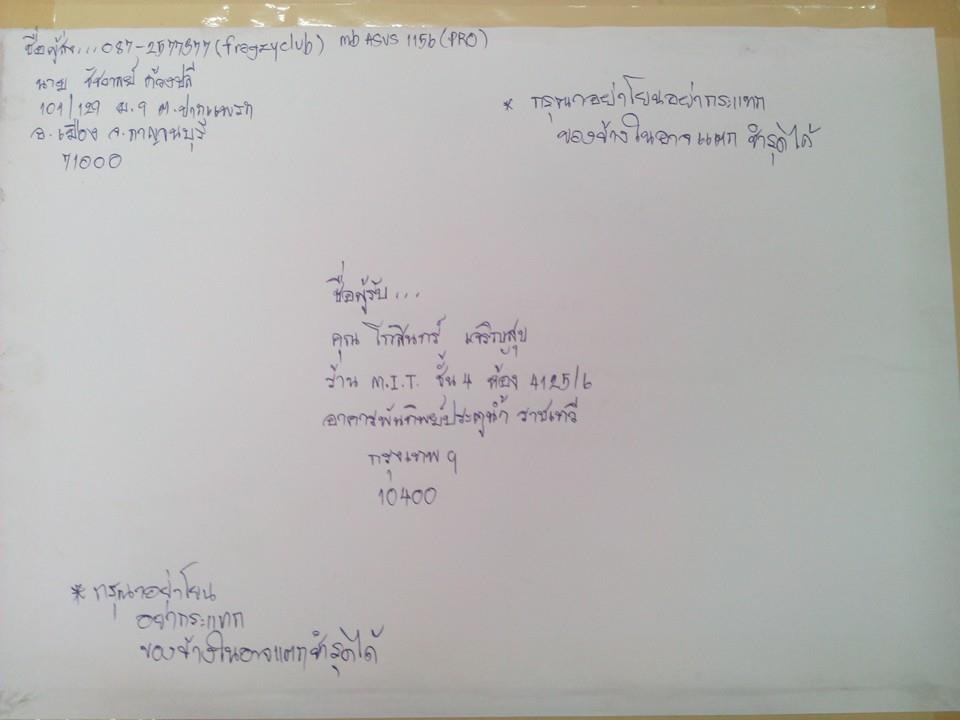 ชื่อผู้ส่ง... 087-2577377 (frogzyclub) mb ASUS 1156 (PRO)
นาย
101/129 ม.9 ต.ปากแพรก
อ.เมือง จ.กาญจนบุรี
71000
* กรุณาอย่าโยนอย่ากระแทก
ของข้างในอาจแตก ชำรุดได้
ชื่อผู้รับ...
คุณ โกสินทร์ เจริญสุข
ร้าน M.I.T. ชั้น 4 ห้อง 4125/6
อาคารพันทิพย์ประตูน้ำ ราชเทวี
กรุงเทพ ฯ
10400
* กรุณาอย่าโยน
อย่ากระแทก
ของข้างในอาจแตกชำรุดได้